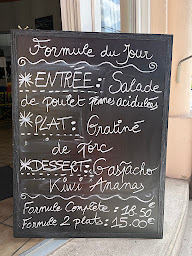 Formule du Jour
*ENTREE: Salade
de poulet pennes acidulées
*PLAT: Gratiné
de porc
*DESSERT: Gaspacho
Kiwi Ananas
Formule Complète: 18.50€
Formule 2 plats: 15.00€